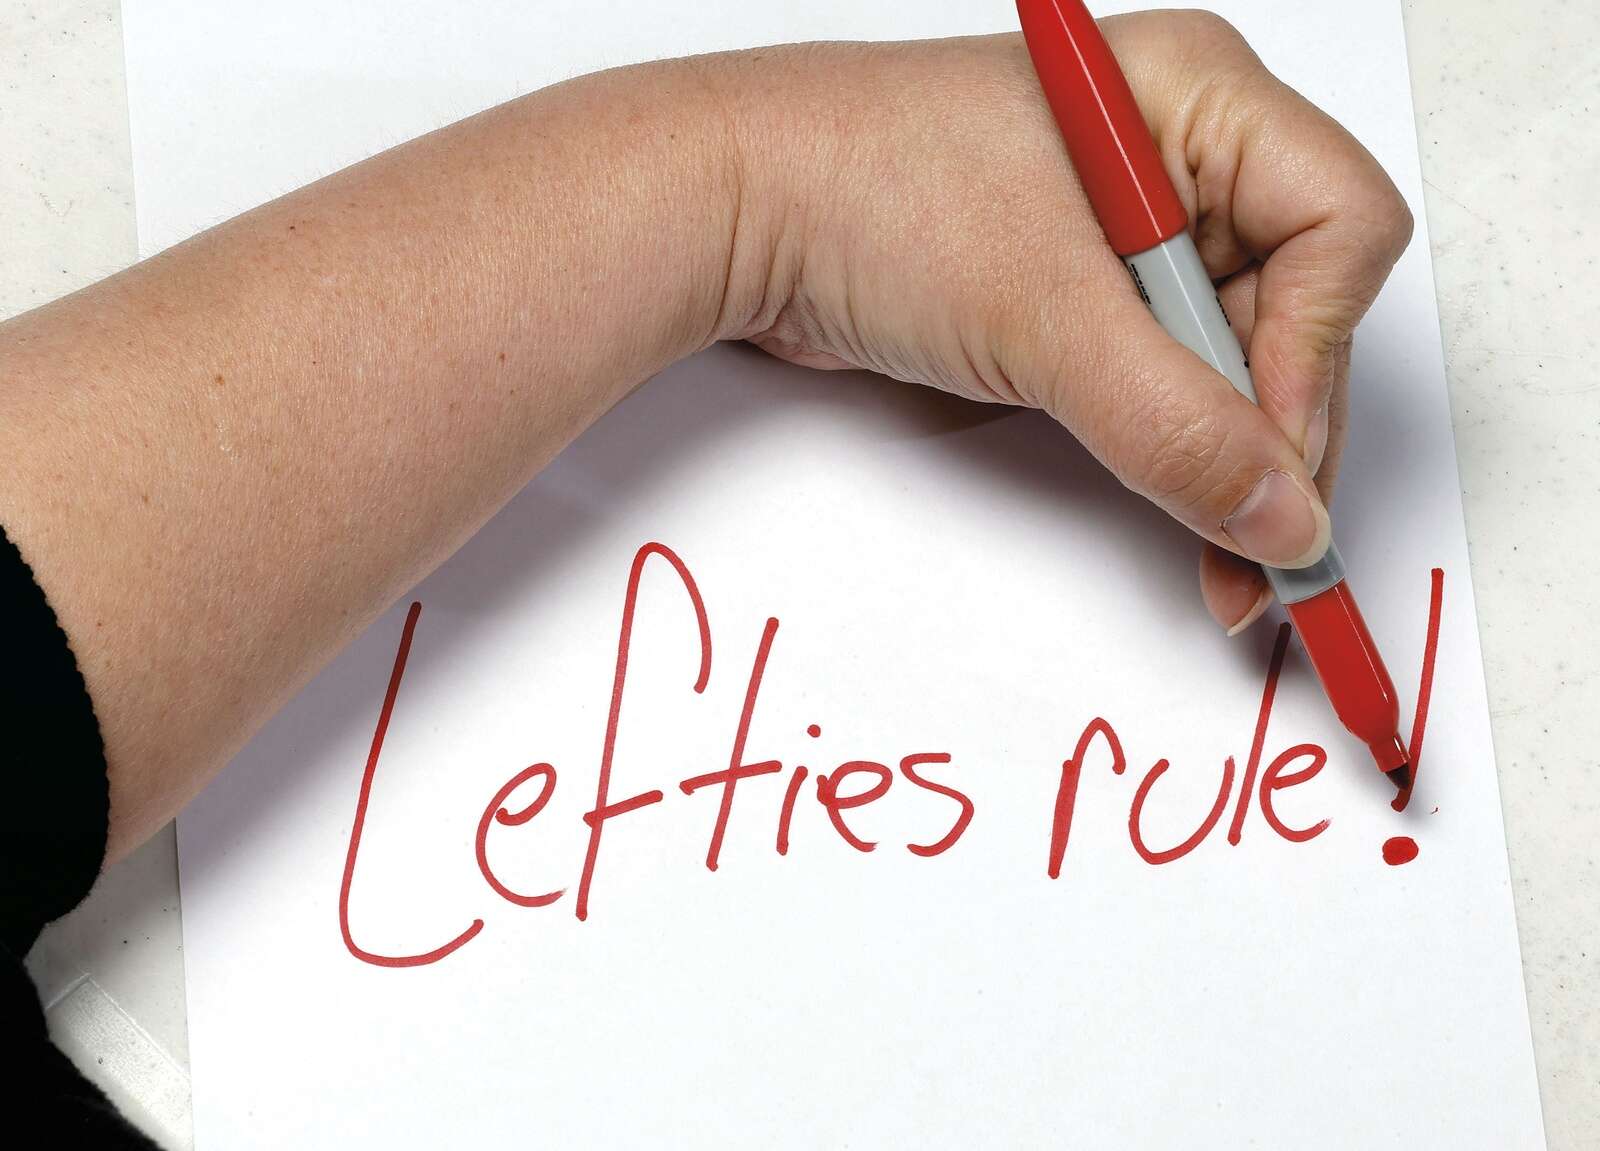 Lefties rule!